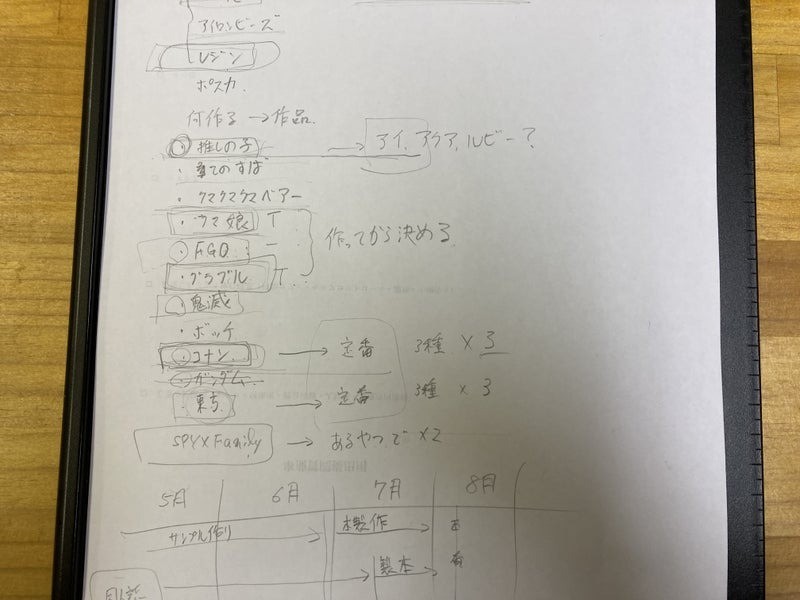 アイロンビーズ
レジン
ポスカ
何作る → 作品
・推しの子 → アイ、アクア、ルビー？
・このすば
・クマクマクマベアー
・ウマ娘 T
・FGO ー 作ってから決める
・グラブル T
・鬼滅
・ボッチ
・コナン → 定番 3種 × 3
・ガンダム
・東方 → 定番 3種 × 3
SPY×Family → あるやつで ×2
5月 6月 7月 8月
サンプル作り 本製作
製本
同人誌